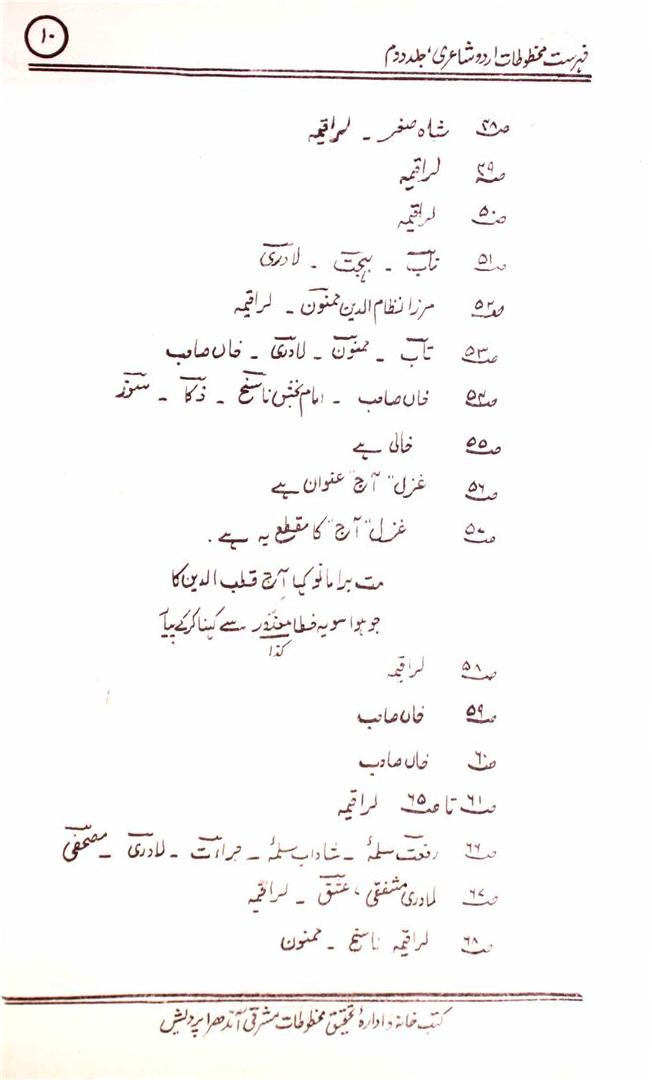 ۱۰
فہرست مخطوطات اردو شاعری، جلد دوم
صـ ۴۸ شاہ صغر ۔ لراقیمہ
صـ ۴۹ لراقیمہ
صـ ۵۰ لراقیمہ
صـ ۵۱ تاب ۔ بہجت ۔ لادری
صـ ۵۲ مرزا نظام الدین ممنون ۔ لراقیمہ
صـ ۵۳ تاب ۔ ممنون ۔ لادری ۔ خاں صاحب
صـ ۵۴ خاں صاحب ۔ امام بخش ناسخ ۔ ذکا ۔ سوز
صـ ۵۵ خالی ہے
صـ ۵۶ غزل "آج" عنوان ہے
صـ ۵۷ غزل "آج" کا مقطع یہ ہے ۔
مت برا مانو کہا آج قطب الدین کا
جو ہوا سو یہ خطا معذور سے کہنا کر کے پیا
کذا
صـ ۵۸ لراقیمہ
صـ ۵۹ خاں صاحب
صـ ۶۰ خاں صاحب
صـ ۶۱ تا صـ ۶۵ لراقیمہ
صـ ۶۶ رفعت سلمہٗ ۔ شاداب سلمہٗ ۔ جراءت ۔ لادری ۔ مصحفی
صـ ۶۷ لادری مشفقی، عشق ۔ لراقیمہ
صـ ۶۸ لراقیمہ ناسخ ۔ ممنون
کتب خانہ و ادارۂ تحقیق مخطوطات مشرقی آندھرا پردیش